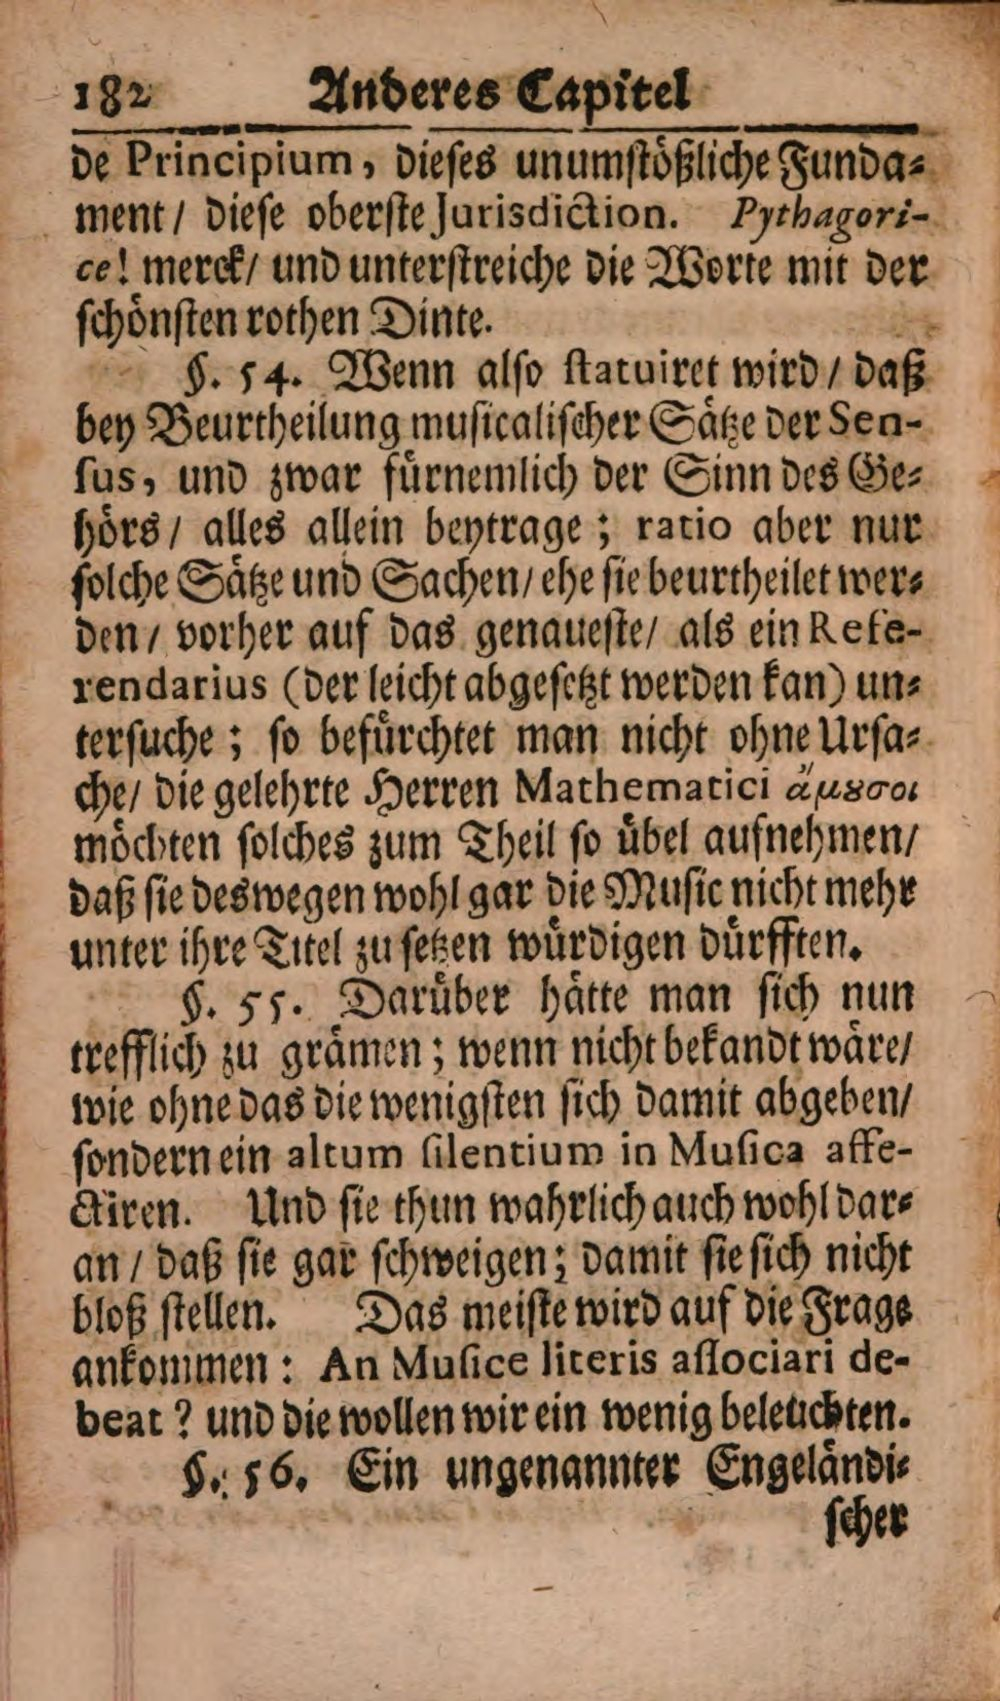 182 Anderes Capitel
de Principium, dieses unumstößliche Funda-
ment/ diese oberste Jurisdiction. Pythagori-
ce! merck/ und unterstreiche die Worte mit der
schönsten rothen Dinte.
§. 54. Wenn also statuiret wird/ daß
bey Beurtheilung musicalischer Sätze der Sen-
sus, und zwar fürnemlich der Sinn des Ge-
hörs/ alles allein beytrage; ratio aber nur
solche Sätze und Sachen/ ehe sie beurtheilet wer-
den/ vorher auf das genaueste/ als ein Refe-
rendarius (der leicht abgesetzt werden kan) un-
tersuche; so befürchtet man nicht ohne Ursa-
che/ die gelehrte Herren Mathematici ἄμȣσοι
möchten solches zum Theil so übel aufnehmen/
daß sie deswegen wohl gar die Music nicht mehr
unter ihre Titel zu setzen würdigen dürfften.
§. 55. Darüber hätte man sich nun
trefflich zu grämen; wenn nicht bekandt wäre/
wie ohne das die wenigsten sich damit abgeben/
sondern ein altum silentium in Musica affe-
ctiren. Und sie thun wahrlich auch wohl dar-
an/ daß sie gar schweigen; damit sie sich nicht
bloß stellen. Das meiste wird auf die Frage
ankommen: An Musice literis associari de-
beat? und die wollen wir ein wenig beleuchten.
§. 56. Ein ungenannter Engeländi-
scher